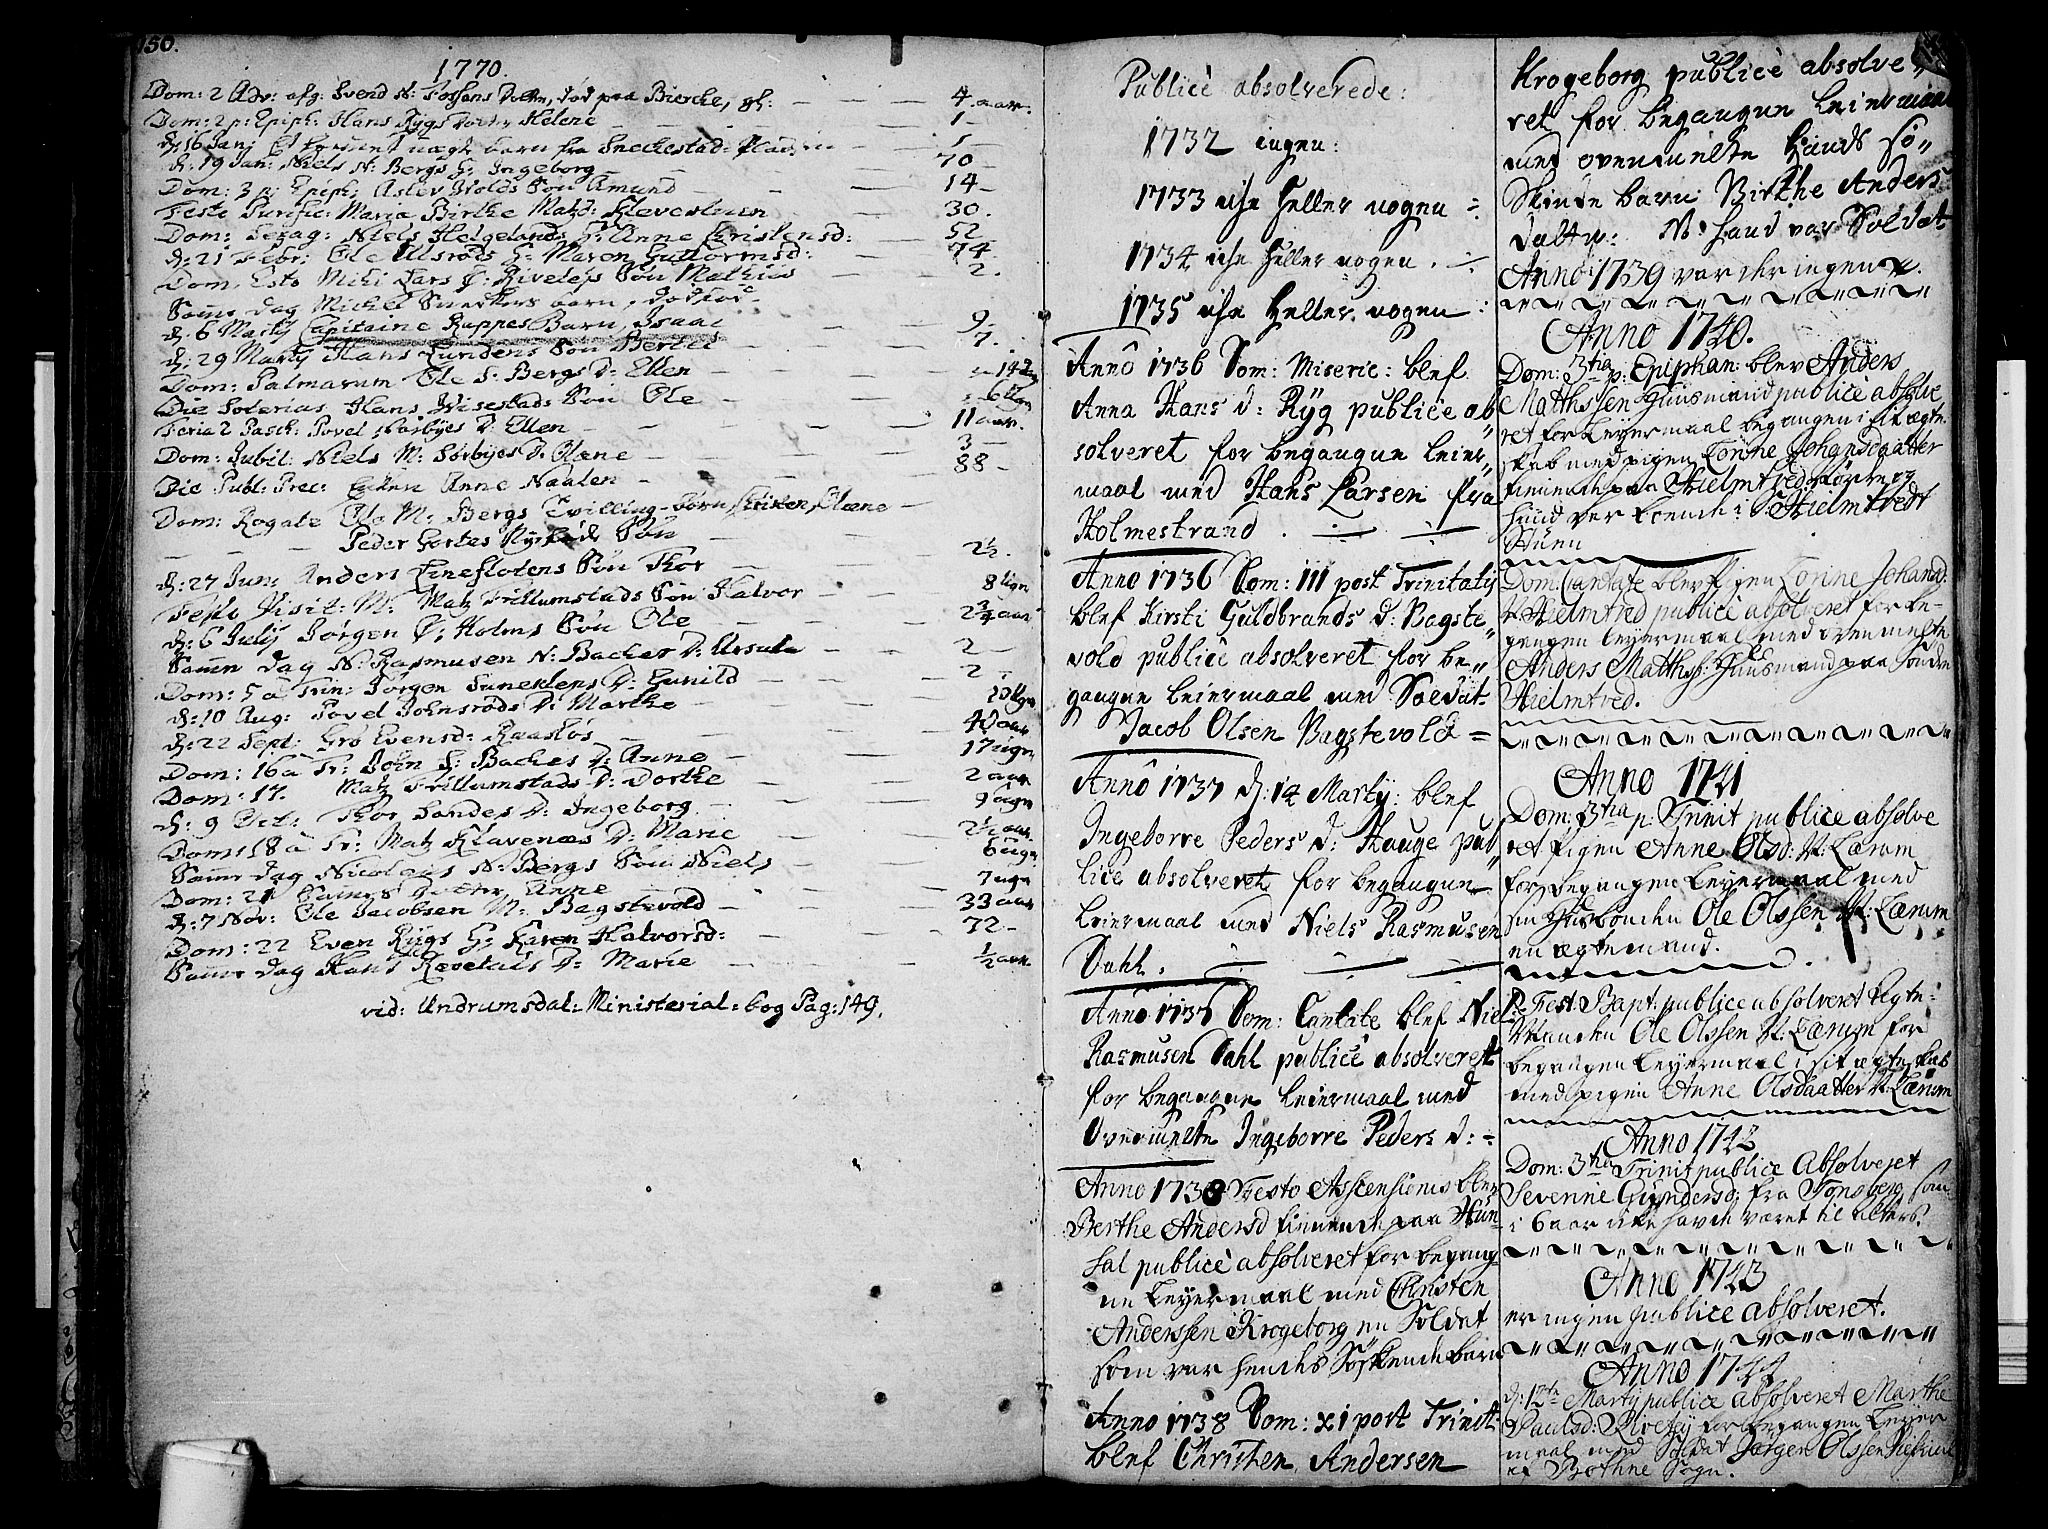 150.
1770.
Dom: 2 Adv: afg: Svend N: Fossens Datter, død paa Bierche, gl: — — — 4. aar.
Dom: 2 p: Epiph: Hans Rÿgs Datter Helene — 1 —
d: 16 Janj Et fremmet uægte barn fra Sneckestad-Pladsen — 1
d: 19 Jan: Niels N: Bergs H: Ingeborg — 70 —
Dom: 3 p: Epiph: Aslev Holds Søn Amund — 14 —
Festo Purific: Mariæ Birthe Matzd: Klevesluen — 30.
Dom: Sexag: Niels Helgelands H: Anne Cristensd: — 52
d: 21 Febr: Ole Ulsrøds H: Maren Guttormsd: — 74
Dom. Esto Mihi Lars Ø: Rivelsø Søn Mathias — 2.
Samme dag Michel Snedkers barn, dødfød —
d. 6 Martij Capitaine Ruppes Barn, Isaac — 9
d: 29 Martij Hans Lundens Søn Bertel — 7.
Dom: Palmarum Ole S: Bergs D: Ellen — 14
Die Solenius Hans Wisestads Søn Ole — 6 Ugr
Feria 2 Pasch: Povel Sørbÿes D: Ellen — 11 aar.
Dom: Jubil: Niels M: Sørbÿes D: Olæne — 3 —
Die Publ: Prec: Enken Anne Naalen — 88 —
Dom: Rogate Ole M: Bergs Tvilling-børn Cristen, Olæne —
— — — Peder Hortes Nÿfødde Søn — 2½.
d: 27 Jun: Anders Lineflotens Søn Thor — 8 Ugr
Festo Visit: M: Matz Trillumstads Søn Halvor — 2¾ aar
d: 6 Julij Jørgen Ø: Holms Søn Ole —
Samme dag N: Rasmusen N: Baches D: Ursula — 2 —
Dom: 5 a Trin: Jørgen Suneklens D: Gunild — 2
d: 10 Aug: Povel Johnsrøds D: Marthe — 10 Ugr
d: 22 Sept: Gro Evensd: Raasløs — 40 aar
Dom: 16 a Tr: John S: Baches D: Anne — 17 Ugr
Dom: 17. Matz Trillumstads D: Dorthe — 2 aar
d: 9 Oct: Thor Sandes D: Ingeborg — 9 Ugr
Dom: 18 a Tr: Matz Klavenæs D: Marie — 2½ aar
Samme dag Nicolaus N: Bergs Søn Niels — 6 Ugr
Dom: 21 Datter, Anne — 7 Ugr
d: 7 Nov: Ole Jacobsen M: Bagstevold — 33 aar
Dom: 22 Even Rÿgs H: Karen Halvorsd: — 72 —
Samme dag Hans Revetals D: Marie — ½ aar
vid: Undrumsdal-Ministerial-bog Pag: 149.
Publicè absolverede:
1732 ingen:
1733 iche heller nogen ÷
1734 iche heller nogen. ÷
1735 iche heller nogen ÷
Anno 1736 Dom: Miseric: blef
Anna Hans d: Rÿg publice ab„
solveret for begangne leier„
maal med Hans Larsen fra
Holmestrand. ÷ ÷
Anno 1736 Dom: III post Trinitatis
blef Kirsti Guldbrands d: Bagste„
vold publicè absolveret for be„
gangne leiermaal med Soldat
Jacob Olsen Bagstevold =
Anno 1737 d: 14 Martij: blef
Ingeborre Peders d: Hauge pub„
lice absolveret for begangne
leiermaal med Niels Rasmusen
Dahl. ÷ ÷ ÷
Anno 1737 Dom: Cantate blef Niels
Rasmusen Dahl publicè absolveret
for begangne leiermaal med
Overmelte Ingeborre Peders d: ÷
Anno 1738 Festo Asscensionis blev
Berthe Andersd tienende paa Hun-
sal publicè absolveret for begang-
ne Leyermaal med Christen
Anderssen Krogeborg en Soldat
som var hendes Søskendebarn
Anno 1738 Dom: XI post Trinit:
blef Christen Andersen
Krogeborg publicè absolve„
ret for begangne leiermaal
med ovenmelte hands Sø„
skinde barn Birthe Anders
datter: NB hand var Soldat
Anno 1739 var der ingen.
Anno 1740.
Dom: 3tia p: Epiphan: blev Anders
Matthssen Huusmand publicè absolve
ret for Leyermaal begangen i sit ægte
skab med pigen Torine Johansdaatter
tienende paa Hielmtved
hand var boende i Hielmtvedt
Stuen
Dom: Cantate blev Pigen Torine Johansd:
Hielmtved publicè absolveret for be-
gangen leyermaal med ovenmelte
Anders Matths: Huusmand paa Søndre
Hielmtved.
Anno 1741
Dom: 3tia p: Trinit publice absolve
ret Pigen Anne Olsd: N: Lærum
for begangen Leyermaal med
sin Husbonden Ole Olssen N: Lærum
en ægtemand.
Fest: Bapt: publice absolveret Ægte-
Manden Ole Olssen N: Lærum for
begangen Leyermaal i sit ægteskab
med pigen Anne Olsdaatter N: Lærum
Anno 1742
Dom: 3tia Trinit publice Absolveret
Severine Gundersd: fra Tonsberg som
i 6 aar icke hafde været til alters.
Anno 1743
er ingen publicè absolveret.
Anno 1744
d: 12te Martij publicè absolveret Marthe
Paulsd: for begangen Leyer
maal med Soldat Jørgen Olssen
af Bothne Sogn.